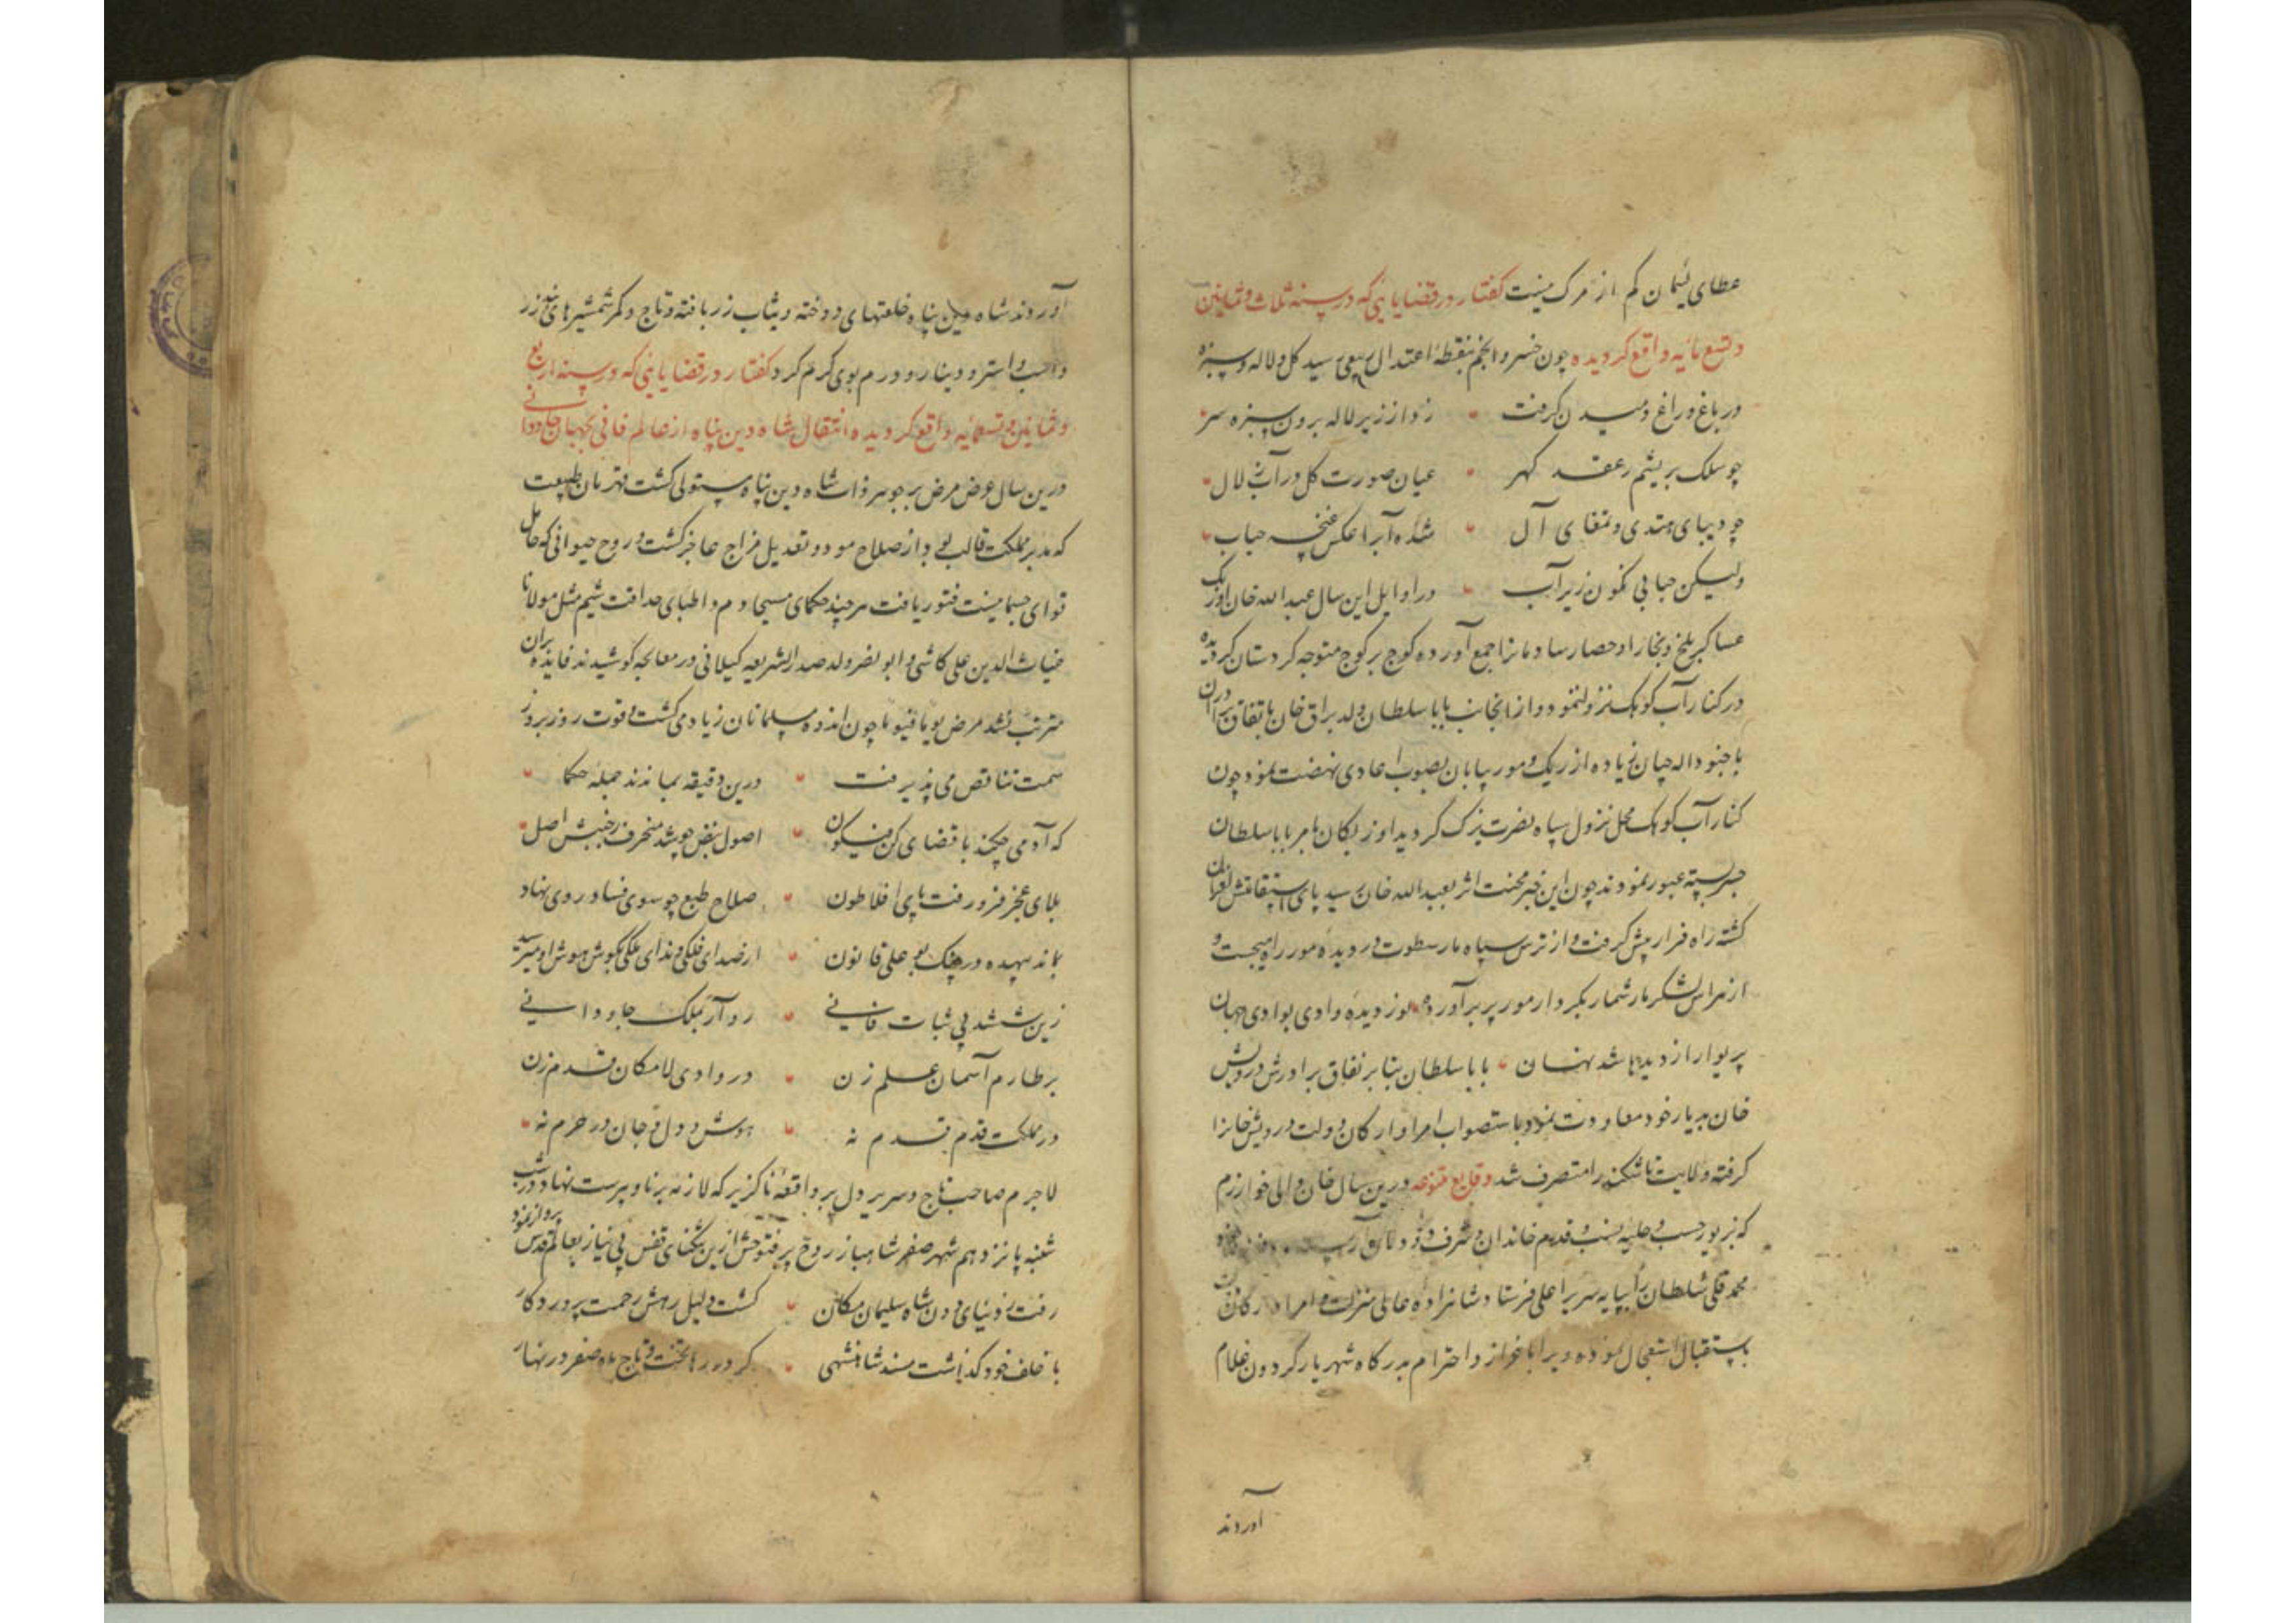 عطای لئیمان کم از مرک نیست کفتار در قضایایئی که در سنه ثلاث و ثمانین
و تسع مائیه واقع کردیده چون خسرو انجم بنقطهٔ اعتدال ربیعی رسید کل و لاله و سبزه
در باغ و راغ دمیدن کرفت زد از زیر لاله برون سبزه سر
چو سلک بریشم ز عقد کهر عیان صورت کل در آب زلال
چو دیبای هندی و تمغای آل شده آب را عکس غنچه حباب
ولیکن حبابی نکون زیر آب در اوایل این سال عبدالله خان اوزبک
عساکر بلخ و بخارا و حصار شادمانرا جمع آورده کوچ بر کوچ متوجه کردستان کردیده
در کنار آب کوهک نزول نمود و از انجانب بابا سلطان ولد براق خان باتفاق برادران
با جنود اله جیان زیاده از ریک و مور بیابان بصوب اعادی نهضت نمود چون
کنار آب کوهک محل نزول سپاه نصرت یزک کردید اوزبکان بامر بابا سلطان
جسر بسته عبور نمودند چون این خبر محنت اثر بعبدالله خان رسید پای استقامتش لغزان
کشته راه فرار پیش کرفت و از ترس سپاه مار سطوت در دیده مور راه میجست و
از هراس لشکر مار شمار بکردار مور پر برآورده نوز دیده وادی بوادی جهان
پریوار از دیدها شد نهان بابا سلطان بنا بر نفاق برادرش درویش
خان بدیار خود معاودت نمود و باستصواب امرا و ارکان دولت درویش خانرا
کرفته ولایت تاشکند را متصرف شد وقایع متنوعه درین سال خان والی خوارزم
که بزیور حسب و حلیه نسب و قدم خاندان و شرف دودمان آراسته
محمد قلی سلطان را بپایه سریر اعلی فرستاد شاهزاده عالی منزلت و امرا و ارکان دولت
باستقبال استعجال نموده ویرا باعزاز و احترام بدرکاه شهریار کردون غلام
آوردند
آوردند شاه دین پناه خلعتهای دوخته و ثیاب زر بافته و تاج و کمر شمشیرهای بند زر
و اسب و استر و دینار و درم بوی کرم کرد کفتار در قضایایئی که در سنه اربع
و ثمانین و تسعمائیه واقع کردیده انتقال شاه دین پناه از عالم فانی بجهان جاودانی
درین سال عرض مرض بر جوهر ذات شاه دین پناه مستولی کشت قهرمان طبیعت
که مدبر مملکت قالب بود از صلاح مود و تعدیل مزاج عاجز کشت و روح حیوانی که حامل
قوای جسمانیست فتور یافت هر چند حکمای مسیحا دم و اطبای حذاقت شیم مثل مولانا
غیاث الدین علی کاشی و ابو نصر ولد صدر الشریعه کیلانی در معالجه کوشیدند فایده بران
مترتب نشد مرض یوما فیوما چون اندوه مسلمانان زیاد می کشت و قوت روز بروز
سمت تناقص می پذیرفت درین دقیقه بماندند جمله حکما
که آدمی چکند با قضای کن فیکون اصول نبض چو شد منحرف ز جنبش اصل
بلای عجز فرو رفت پای افلاطون صلاح طبع چو سوی فساد روی نهاد
بماند بیهده در چنک بو علی قانون از صدای فلکی و ندای ملکی بکوش هوش او میرسید
زین شش شد بی ثبات فانی رو آر بملک جاودانی
بر طارم آسمان علم زن در وادی لامکان قدم زن
در مملکت قدم قدم نه هوش و دل و جان در حرم نه
لاجرم صاحب تاج و سریر دل بر واقعهٔ ناکزیر که لازمه برنا و پیرست نهاد و در شب
شنبه پانزدهم شهر صفر شاهباز روح پر فتوحش ازین تنکنای قفس بی نیاز بعالم قدس پرواز نمود
رفت ز دنیای دون شاه سلیمان مکان کشت دلیل رهش رحمت پروردکار
با خلف خود کذاشت مسند شاهنشهی کرد رها تخت و تاج ماه صفر در نهار